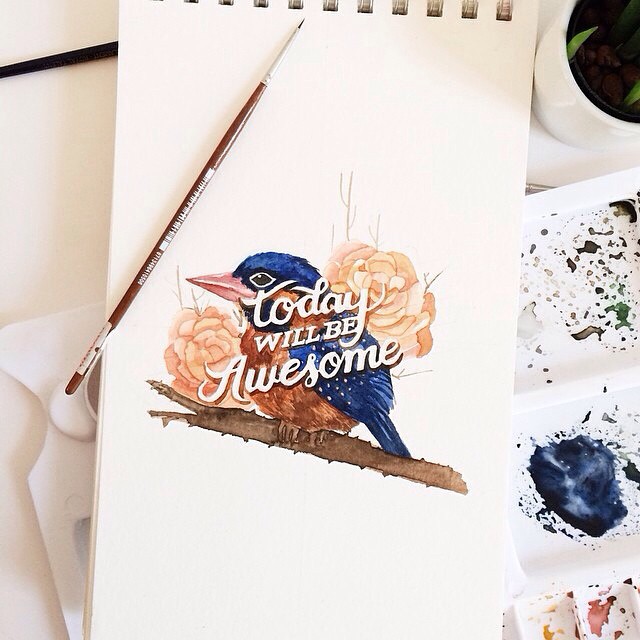 today
WILL BE
Awesome